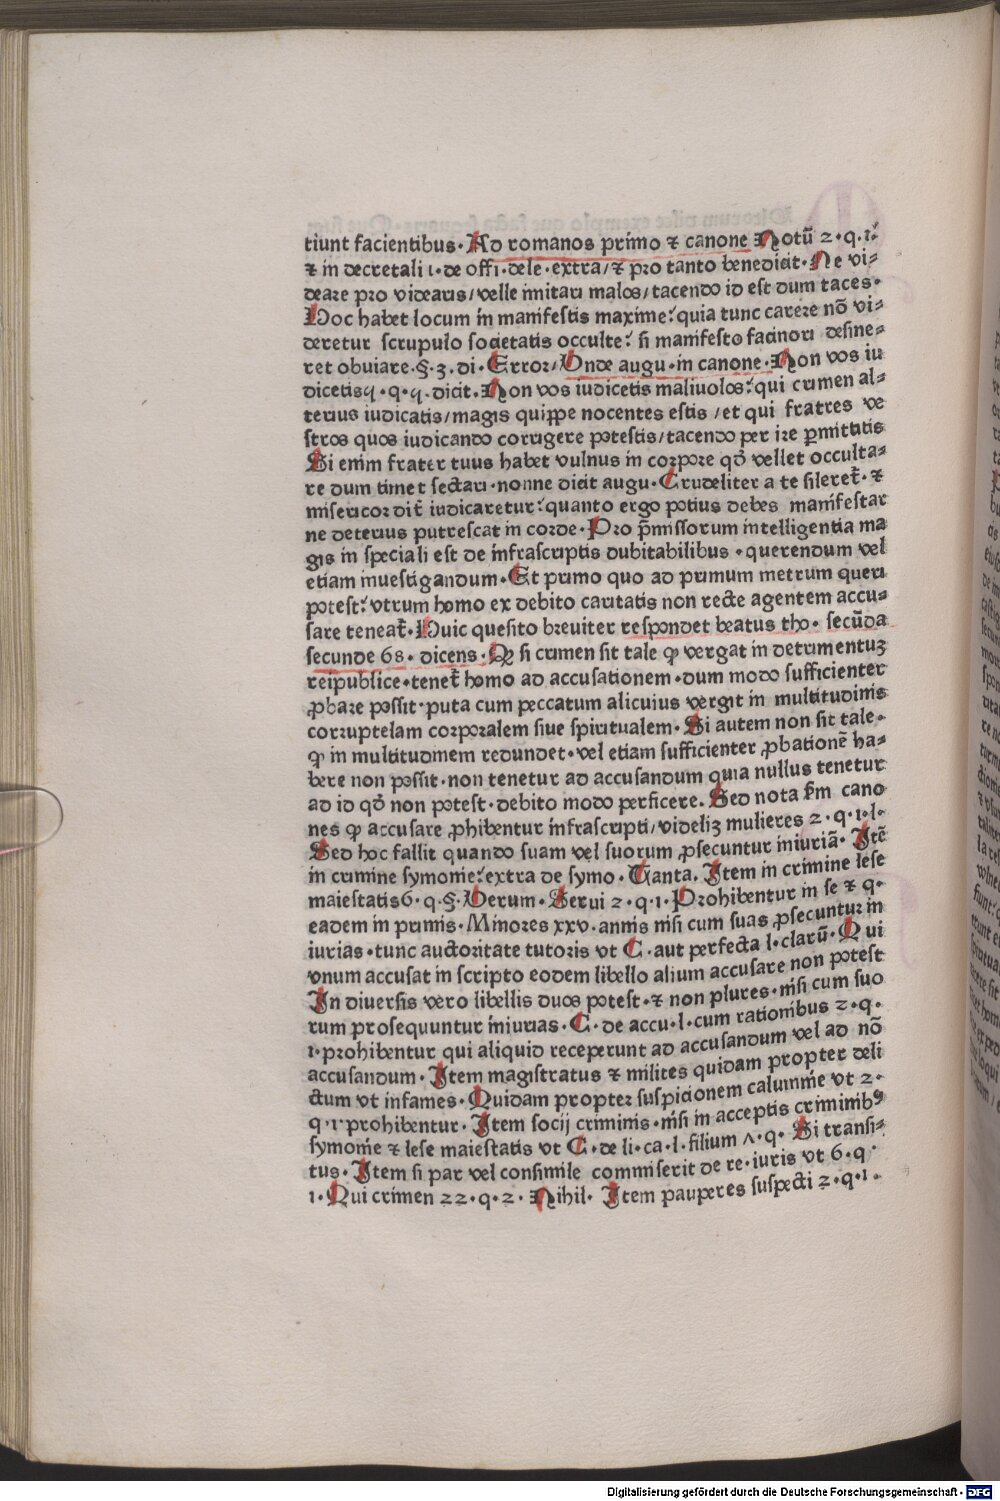 tiunt facientibus· Ad romanos primo ⁊ canone Notū 2·q·1·
⁊ in decretali 1·de offi·dele·extra/⁊ pro tanto benedicit·Ne vi⸗
deare pro videaris/velle imitari malos/tacendo id est dum taces·
Hoc habet locum in manifestis maxime:quia tunc carere nō vi⸗
deretur scrupulo societatis occulte: si manifesto facinori desine⸗
ret obuiare·§·3·di·Error/Unde augu·in canone·Non vos iu
dicetisq·q·q·dicit·Non vos iudicetis maliuolos:qui crimen al⸗
terius iudicatis/magis quippe nocentes estis/et qui fratres ve
stros quos iudicando corrigere potestis/tacendo per ire ꝑmittitis
Si enim frater tuus habet vulnus in corpore qđ vellet occulta⸗
re dum timet sectari·nonne dicit augu·Crudeliter a te sileret᷑·⁊
misericordit᷑ iudicaretur:quanto ergo potius debes manifestar
ne deterius putrescat in corde·Pro p̄missorum intelligentia ma
gis in speciali est de infrascriptis dubitabilibus·querendum vel
etiam inuestigandum·Et primo quo ad primum metrum queri
potest:vtrum homo ex debito caritatis non recte agentem accu⸗
sare teneat᷑·Huic quesito breuiter respondet beatus tho· secūda
secunde 68· dicens·Ꝙ si crimen sit tale ꝙ vergat in detrimentuꝫ
reipublice·tenet᷑ homo ad accusationem·dum modo sufficienter
ꝓbare possit·puta cum peccatum alicuius vergit in multitudinis
corruptelam corporalem siue spiritualem·Si autem non sit tale·
ꝙ in multitudinem redundet·vel etiam sufficienter ꝓbationē ha⸗
bere non possit·non tenetur ad accusandum quia nullus tenetur
ad id qđ non potest·debito modo perficere·Sed nota s̄m cano
nes ꝙ accusare ꝓhibentur infrascripti/videliꝫ mulieres 2·q·1·l·
Sed hoc fallit quando suam vel suorum ꝓsecuntur iniuriā·Itē
in crimine symonie:extra de symo·Tanta·Item in crimine lese
maiestatis6·q·§·Verum·Serui 2·q·1·Prohibentur in se ⁊ q·
eadem in primis·Minores xxv·annis nisi cum suas ꝓsecuntur in
iurias·tunc auctoritate tutoris vt C·aut perfecta l·clarū·Qui
vnum accusat in scripto eodem libello alium accusare non potest
In diuersis vero libellis duos potest·⁊ non plures·nisi cum suo
rum prosequuntur iniurias·C·de accu·l·cum rationibus 2·q·
1·prohibentur qui aliquid receperunt ad accusandum vel ad nō
accusandum·Item magistratus ⁊ milites quidam propter deli
ctum vt infames·Quidam propter suspicionem calumnie vt 2·
q·1·prohibentur·Item socij criminis·nisi in acceptis criminibꝰ
symonie ⁊ lese maiestatis vt C·de li·ca·l·filium ʌ·q·Si transi⸗
tus·Item si par vel consimile commiserit de re·iuris vt 6·q·
1·Qui crimen 22·q·2·Nihil·Item pauperes suspecti 2·q·1·
Digitalisierung gefördert durch die Deutsche Forschungsgemeinschaft · DFG